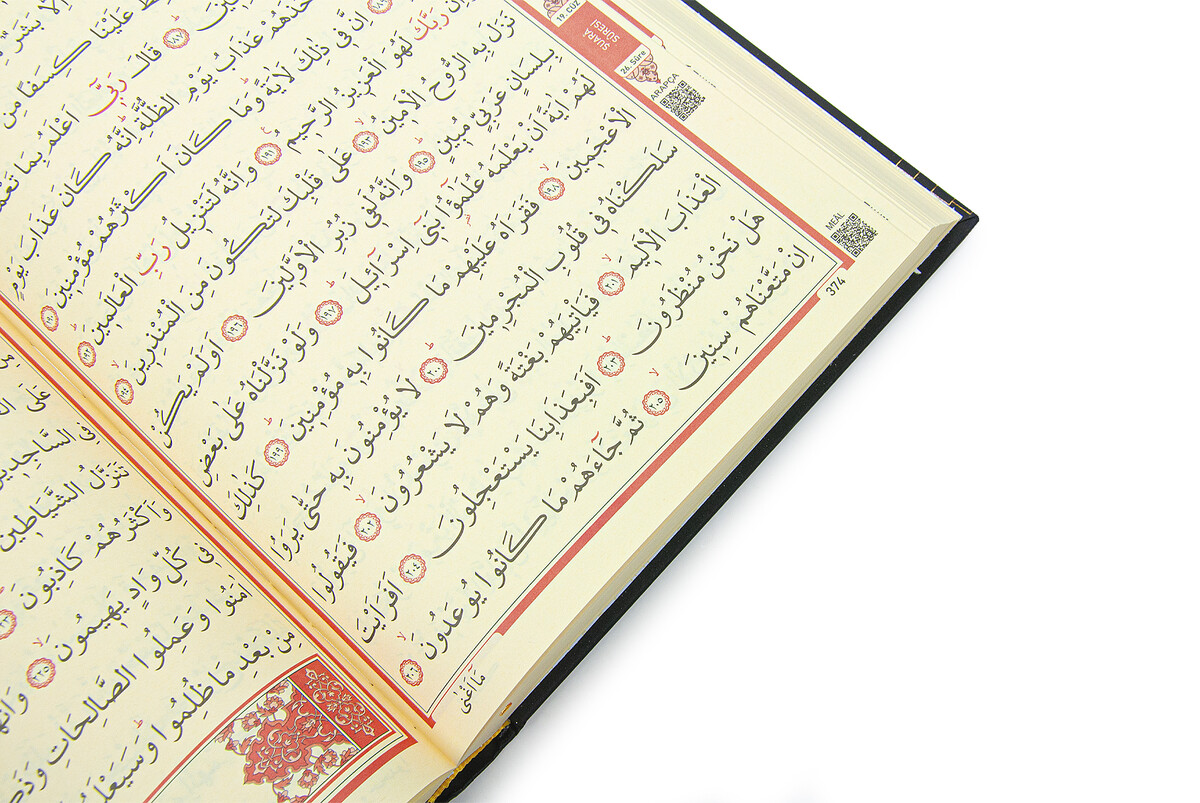 19. CÜZ
ŞUARÂ SÛRESİ
26. Sûre
ARAPÇA
MEAL
374
عَلَيْنَا كِسَفًا مِنَ
﴿١٨٧﴾ قَالَ رَبّٖٓي اَعْلَمُ بِمَا
عَذَابُ يَوْمِ الظُّلَّةِ اِنَّهُ كَانَ عَذَابَ يَوْمٍ
﴿١٨٩﴾ اِنَّ فٖي ذٰلِكَ لَاٰيَةً وَمَا كَانَ اَكْثَرُهُمْ مُؤْمِنٖينَ ﴿١٩٠﴾
رَبَّكَ لَهُوَ الْعَزٖيزُ الرَّحٖيمُ ﴿١٩١﴾ وَاِنَّهُ لَتَنْزٖيلُ رَبِّ الْعَالَمٖينَ ﴿١٩٢﴾
نَزَلَ بِهِ الرُّوحُ الْاَمٖينُ ﴿١٩٣﴾ عَلٰى قَلْبِكَ لِتَكُونَ مِنَ الْمُنْذِرٖينَ ﴿١٩٤﴾
بِلِسَانٍ عَرَبِيٍّ مُبٖينٍ ﴿١٩٥﴾ وَاِنَّهُ لَفٖي زُبُرِ الْاَوَّلٖينَ ﴿١٩٦﴾ اَوَلَمْ يَكُنْ
لَهُمْ اٰيَةً اَنْ يَعْلَمَهُ عُلَمٰٓؤُا بَنٖٓي اِسْرَٓائٖلَ ﴿١٩٧﴾ وَلَوْ نَزَّلْنَاهُ عَلٰى بَعْضِ
الْاَعْجَمٖينَ ﴿١٩٨﴾ فَقَرَاَهُ عَلَيْهِمْ مَا كَانُوا بِهٖ مُؤْمِنٖينَ ﴿١٩٩﴾ كَذٰلِكَ
سَلَكْنَاهُ فٖي قُلُوبِ الْمُجْرِمٖينَ ﴿٢٠٠﴾ لَا يُؤْمِنُونَ بِهٖ حَتّٰى يَرَوُا
الْعَذَابَ الْاَلٖيمَ ﴿٢٠١﴾ فَيَاْتِيَهُمْ بَغْتَةً وَهُمْ لَا يَشْعُرُونَ ﴿٢٠٢﴾ فَيَقُولُوا
هَلْ نَحْنُ مُنْظَرُونَ ﴿٢٠٣﴾ اَفَبِعَذَابِنَا يَسْتَعْجِلُونَ ﴿٢٠٤﴾ اَفَرَاَيْتَ
اِنْ مَتَّعْنَاهُمْ سِنٖينَ ﴿٢٠٥﴾ ثُمَّ جَٓاءَهُمْ مَا كَانُوا يُوعَدُونَ ﴿٢٠٦﴾
مَٓا اَغْنٰى
فِي السَّاجِدٖينَ
تَنَزَّلُ الشَّيَاطٖينُ
وَاَكْثَرُهُمْ كَاذِبُونَ ﴿٢٢٣﴾
فٖي كُلِّ وَادٍ يَهٖيمُونَ ﴿٢٢٥﴾ وَاَنَّهُمْ
اٰمَنُوا وَعَمِلُوا الصَّالِحَاتِ
مِنْ بَعْدِ مَا ظُلِمُوا وَسَيَعْلَمُ